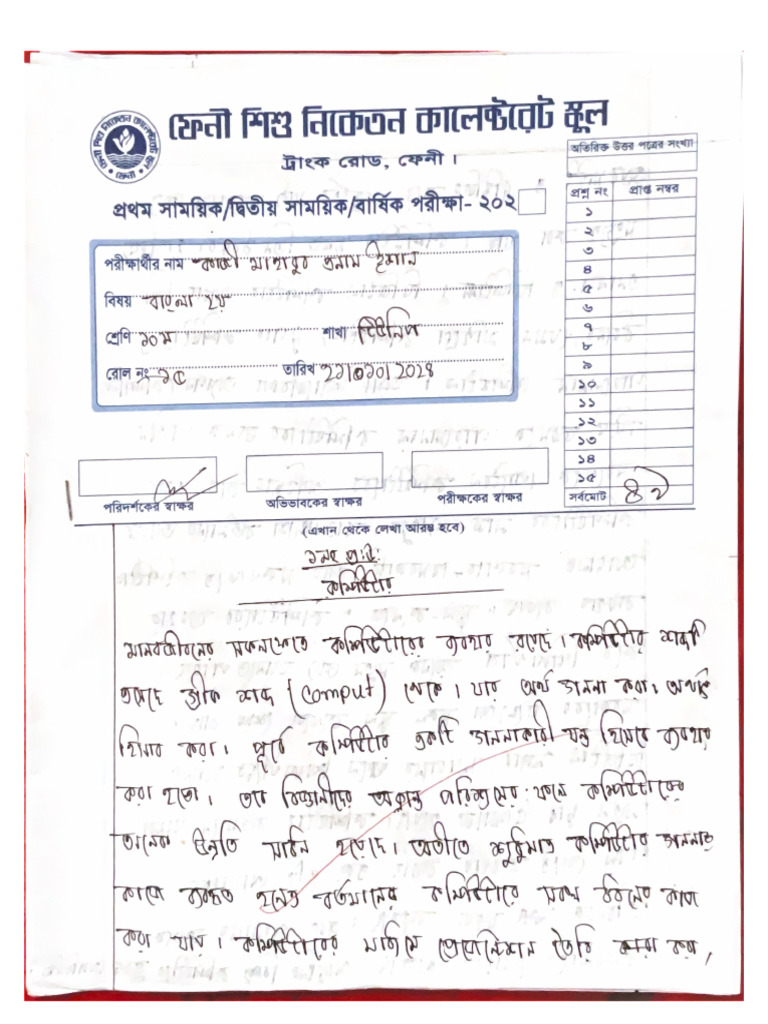 ফেনী শিশু নিকেতন কালেক্টরেট স্কুল
ট্রাংক রোড, ফেনী ।
প্রথম সাময়িক/দ্বিতীয় সাময়িক/বার্ষিক পরীক্ষা- ২০২
অতিরিক্ত উত্তর পত্রের সংখ্যা
প্রশ্ন নং প্রাপ্ত নম্বর
১
২
৩
৪
৫
৬
৭
৮
৯
১০
১১
১২
১৩
১৪
১৫
সর্বমোট ৪২
পরীক্ষার্থীর নাম কাজী মাহাবুব ইশান
বিষয় বাংলা ২য়
শ্রেণি ১০ম শাখা টিউলিপ
রোল নং ১৫ তারিখ ২১।১০।২০২৪
পরিদর্শকের স্বাক্ষর অভিভাবকের স্বাক্ষর পরীক্ষকের স্বাক্ষর
(এখান থেকে লেখা আরম্ভ হবে)
১নং প্র: উ:
কম্পিউটার
মানবজীবনের সকলক্ষেত্রে কম্পিউটারের ব্যবহার রয়েছে। কম্পিউটার শব্দটি
এসেছে গ্রীক শব্দ (Comput) থেকে। যার অর্থ গণনা করা। অথবা
হিসাব করা। পূর্বে কম্পিউটার একটি গণনাকারী যন্ত্র হিসেবে ব্যবহার
করা হতো। তবে বিজ্ঞানীদের অক্লান্ত পরিশ্রমের ফলে কম্পিউটারের
অনেক উন্নতি সাধন হয়েছে। অতীতে শুধুমাত্র কম্পিউটার গণনার
কাজে ব্যবহৃত হলেও বর্তমানের কম্পিউটারে সবধ ধরনের কাজ
করা যায়। কম্পিউটারের মাধ্যমে তৈরি করা,